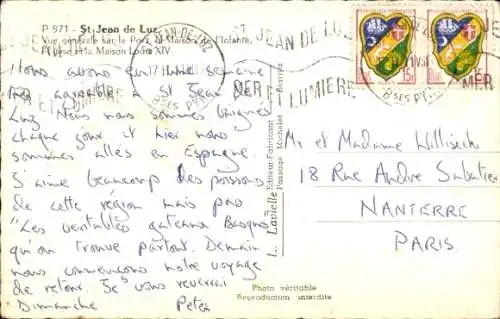 P 971 - St-Jean de Luz
Vue générale sur le Port, la Maison de l'Infante,
l'Eglise et la Maison Louis XIV
Nous avons eu une semaine
très agréable à St Jean de
Luz. Nous nous sommes baignés
chaque jour et hier nous
sommes allés en Espagne.
J'aime beaucoup des poissons
de cette région mais pas
"Les véritables gateaux Basques"
qu'on trouve partout. Demain
nous commençons notre voyage
de retour. Je vous reverrai
Dimanche Peter
L. Lavielle Editeur-Fabricant
Photo véritable
Reproduction interdite
ST JEAN DE LUZ
BSES PYR
JEAN DE LUZ
MER
ET LUMIERE
MER
15F
Mr et Madame Willisech
18 Rue André Sabatier
NANTERRE
PARIS.